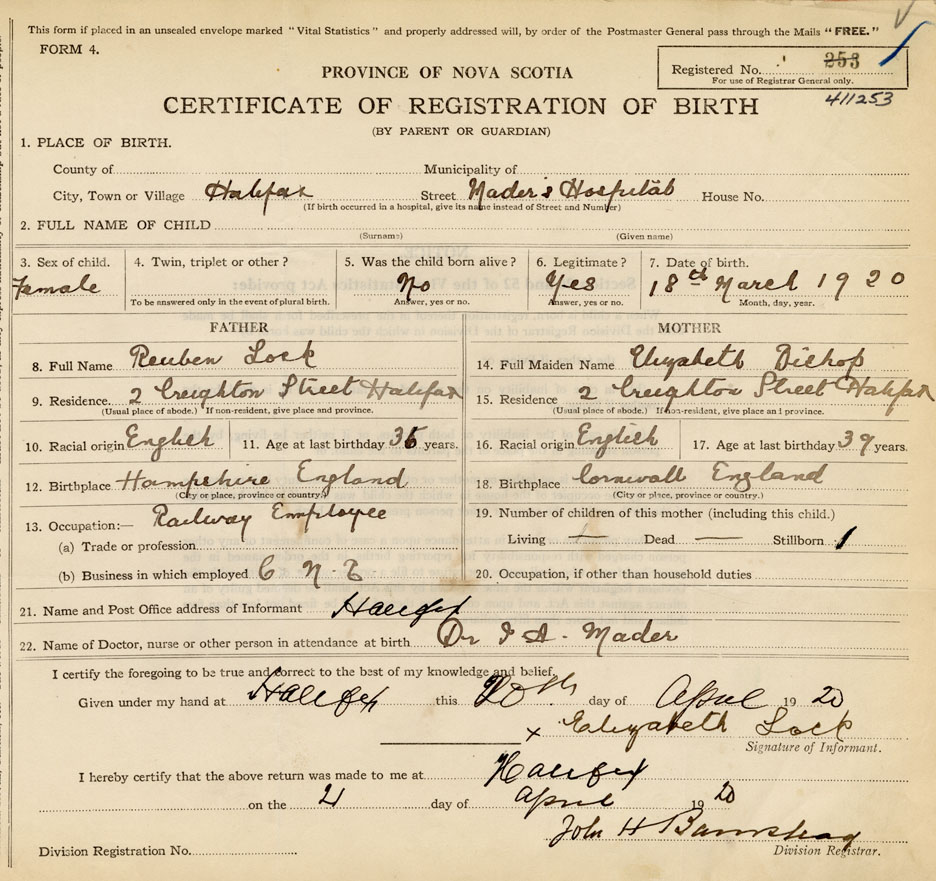 This form if placed in an unsealed envelope marked "Vital Statistics" and properly addressed will, by order of the Postmaster General pass through the Mails "FREE."
FORM 4.
Registered No. 253
For use of Registrar General only.
411253
PROVINCE OF NOVA SCOTIA
CERTIFICATE OF REGISTRATION OF BIRTH
(BY PARENT OR GUARDIAN)
1. PLACE OF BIRTH.
County of Municipality of
City, Town or Village Halifax Street Mader's Hospital House No.
(If birth occurred in a hospital, give its name instead of Street and Number)
2. FULL NAME OF CHILD
(Surname) (Given name)
3. Sex of child. 4. Twin, triplet or other? 5. Was the child born alive? 6. Legitimate? 7. Date of birth.
Female No Yes 18th March 1920
To be answered only in the event of plural birth. Answer, yes or no. Answer, yes or no. Month, day, year.
FATHER
8. Full Name Reuben Lock
9. Residence. 2 Creighton Street Halifax
(Usual place of abode.) If non-resident, give place and province.
10. Racial origin English 11. Age at last birthday 36 years.
12. Birthplace Hampshire England
(City or place, province or country.)
13. Occupation:— Railway Employee
(a) Trade or profession
(b) Business in which employed C N R
MOTHER
14. Full Maiden Name Elizabeth Bishop
15. Residence 2 Creighton Street Halifax
(Usual place of abode.) If non-resident, give place and province.
16. Racial origin English 17. Age at last birthday 39 years.
18. Birthplace Cornwall England
(City or place, province or country.)
19. Number of children of this mother (including this child.)
Living — Dead — Stillborn 1
20. Occupation, if other than household duties
21. Name and Post Office address of Informant Halifax
22. Name of Doctor, nurse or other person in attendance at birth Dr I A. Mader
I certify the foregoing to be true and correct to the best of my knowledge and belief.
Given under my hand at Halifax this 20th day of April 1920
x Elizabeth Lock
Signature of Informant.
I hereby certify that the above return was made to me at Halifax
on the 21 day of April 1920
John H
Division Registration No. Division Registrar.